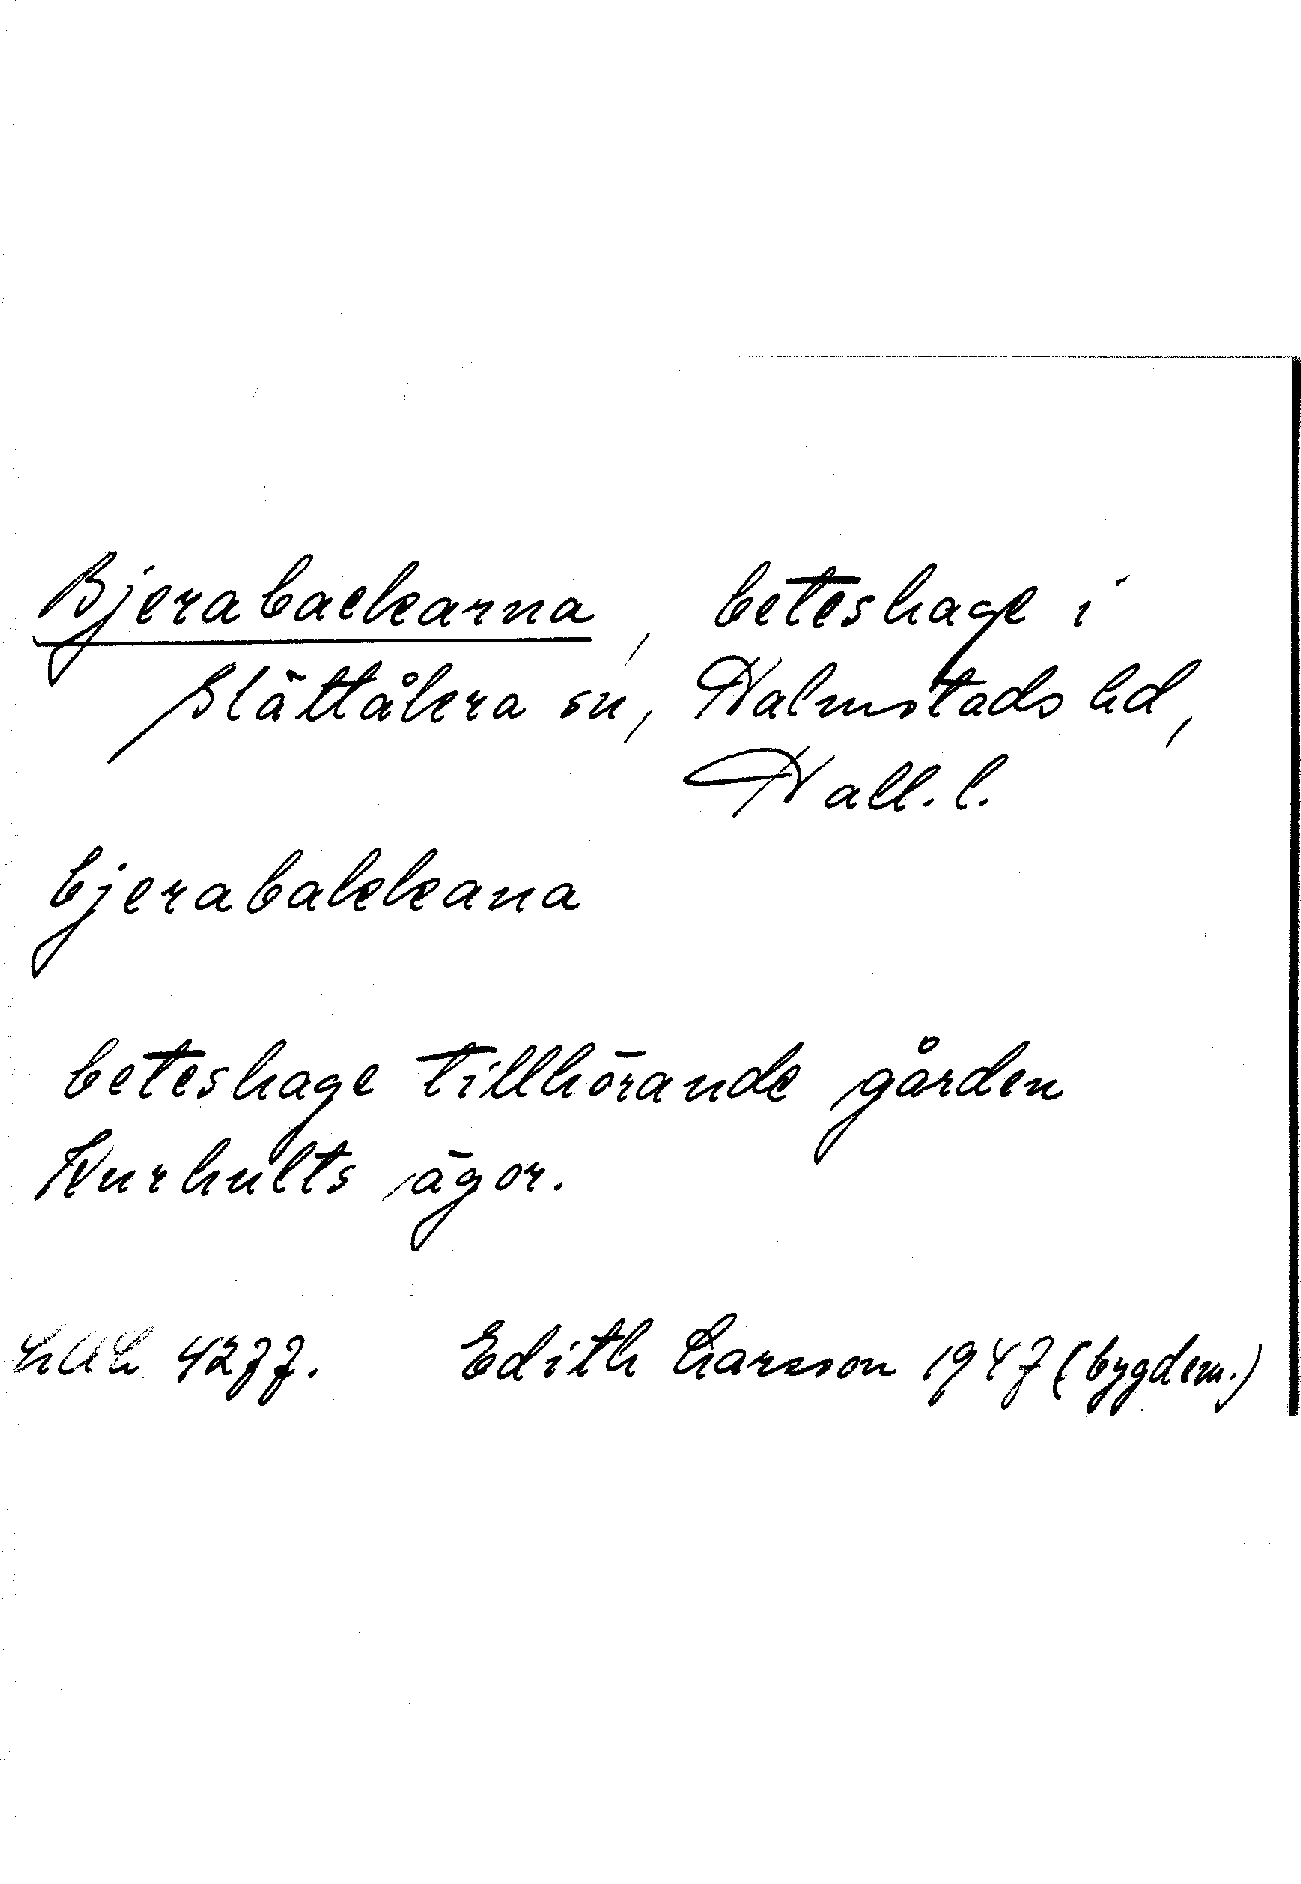 Bjerabackarna, beteshage i
Slättåkra sn, Halmstads hd,
Hall. l.
bjerabakkana
beteshage tillhörande gården
Kurhults ägor.
LAL 4277. Edith Larsson 1947 (bygdem.)